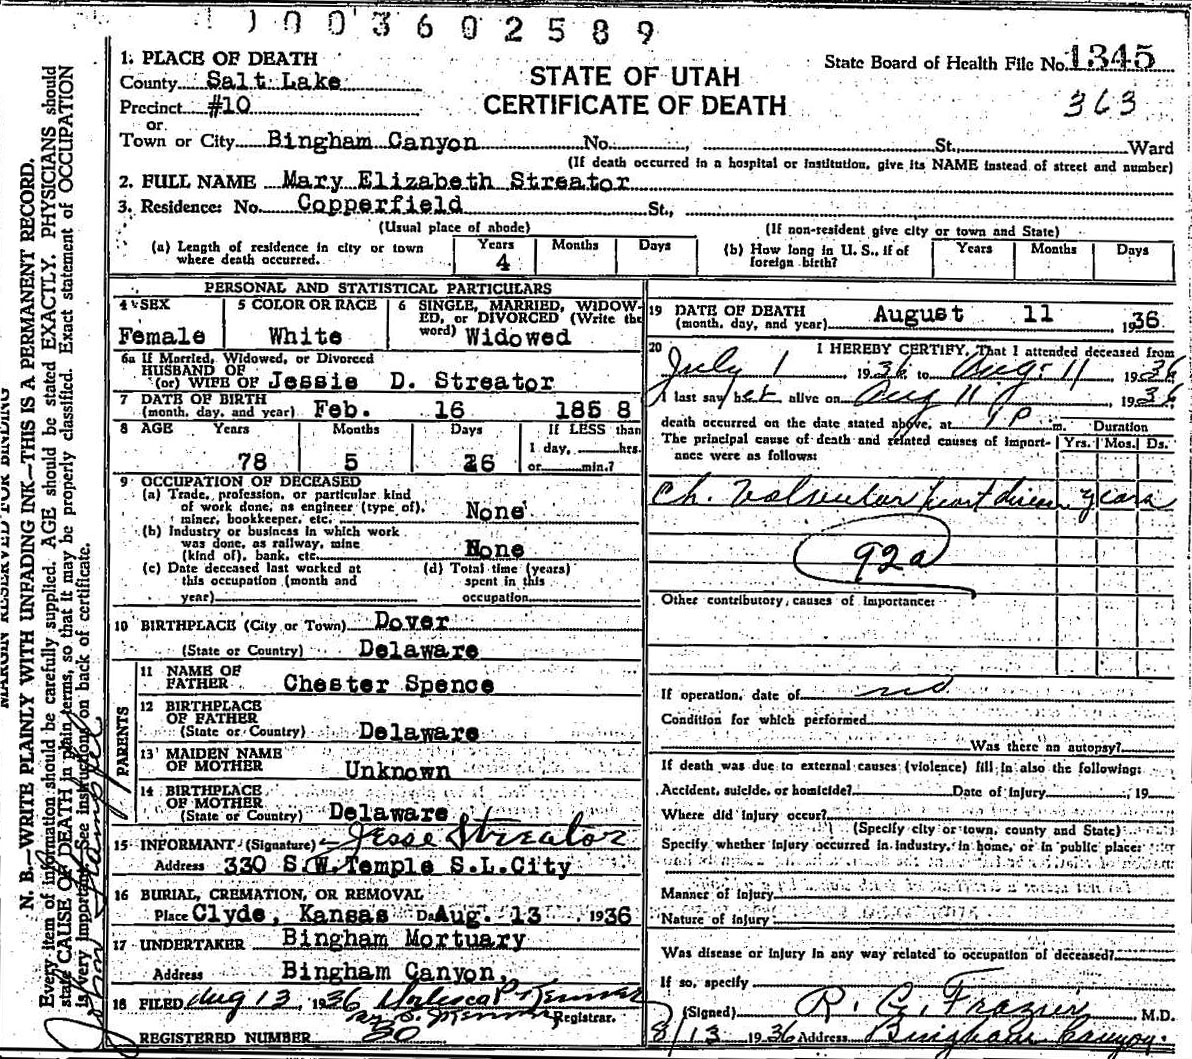 1003602589
1. PLACE OF DEATH
County Salt Lake
Precinct #10
or
Town or City Bingham Canyon No. , St. Ward
STATE OF UTAH
CERTIFICATE OF DEATH
State Board of Health File No. 1345
363
(If death occurred in a hospital or institution, give its NAME instead of street and number)
2. FULL NAME Mary Elizabeth Streator
3. Residence: No. Copperfield St.,
(Usual place of abode) (If non-resident give city or town and State)
(a) Length of residence in city or town where death occurred. Years 4 Months Days
(b) How long in U. S., if of foreign birth? Years Months Days
PERSONAL AND STATISTICAL PARTICULARS
4 SEX Female
5 COLOR OR RACE White
6 SINGLE, MARRIED, WIDOWED, or DIVORCED (Write the word) Widowed
6a If Married, Widowed, or Divorced
HUSBAND OF
(or) WIFE OF Jessie D. Streator
7 DATE OF BIRTH
(month, day, and year) Feb. 16 1858
8 AGE Years Months Days If LESS than
78 5 26 1 day, hrs.
or min.?
9 OCCUPATION OF DECEASED
(a) Trade, profession, or particular kind
of work done, as engineer (type of),
miner, bookkeeper, etc. None
(b) Industry or business in which work
was done, as railway, mine
(kind of), bank, etc. None
(c) Date deceased last worked at
this occupation (month and
year)
(d) Total time (years)
spent in this
occupation
10 BIRTHPLACE (City or Town) Dover
(State or Country) Delaware
PARENTS
11 NAME OF
FATHER Chester Spence
12 BIRTHPLACE
OF FATHER
(State or Country) Delaware
13 MAIDEN NAME
OF MOTHER Unknown
14 BIRTHPLACE
OF MOTHER
(State or Country) Delaware
15 INFORMANT (Signature) Jesse Streator
Address 330 S.W. Temple S.L.City
16 BURIAL, CREMATION, OR REMOVAL
Place Clyde, Kansas Da Aug. 13 1936
17 UNDERTAKER Bingham Mortuary
Address Bingham Canyon,
18 FILED Aug 13, 1936
Registrar.
REGISTERED NUMBER 30
19 DATE OF DEATH
(month, day, and year) August 11 1936
20 I HEREBY CERTIFY, That I attended deceased from
July 1 1936 to Aug. 11 1936
I last saw her alive on Aug 11 1936
death occurred on the date stated above, at 1 P m.
Duration
The principal cause of death and related causes of importance were as follows: Yrs. Mos. Ds.
Ch. Valvular heart disease years
92a
Other contributory causes of importance:
If operation, date of no
Condition for which performed
Was there an autopsy?
If death was due to external causes (violence) fill in also the following:
Accident, suicide, or homicide? Date of injury , 19
Where did injury occur?
(Specify city or town, county and State)
Specify whether injury occurred in industry, in home, or in public place:
Manner of injury
Nature of injury
Was disease or injury in any way related to occupation of deceased?
If so, specify
(Signed) R. G. Frazier M.D.
8/13 1936 Address Bingham Canyon.
MARGIN RESERVED FOR BINDING
N. B.—WRITE PLAINLY WITH UNFADING INK—THIS IS A PERMANENT RECORD.
Every item of information should be carefully supplied. AGE should be stated EXACTLY. PHYSICIANS should
state CAUSE OF DEATH in plain terms, so that it may be properly classified. Exact statement of OCCUPATION
is very important. See instructions on back of certificate.